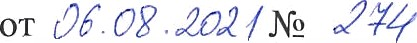 от 06.08.2021 № 274